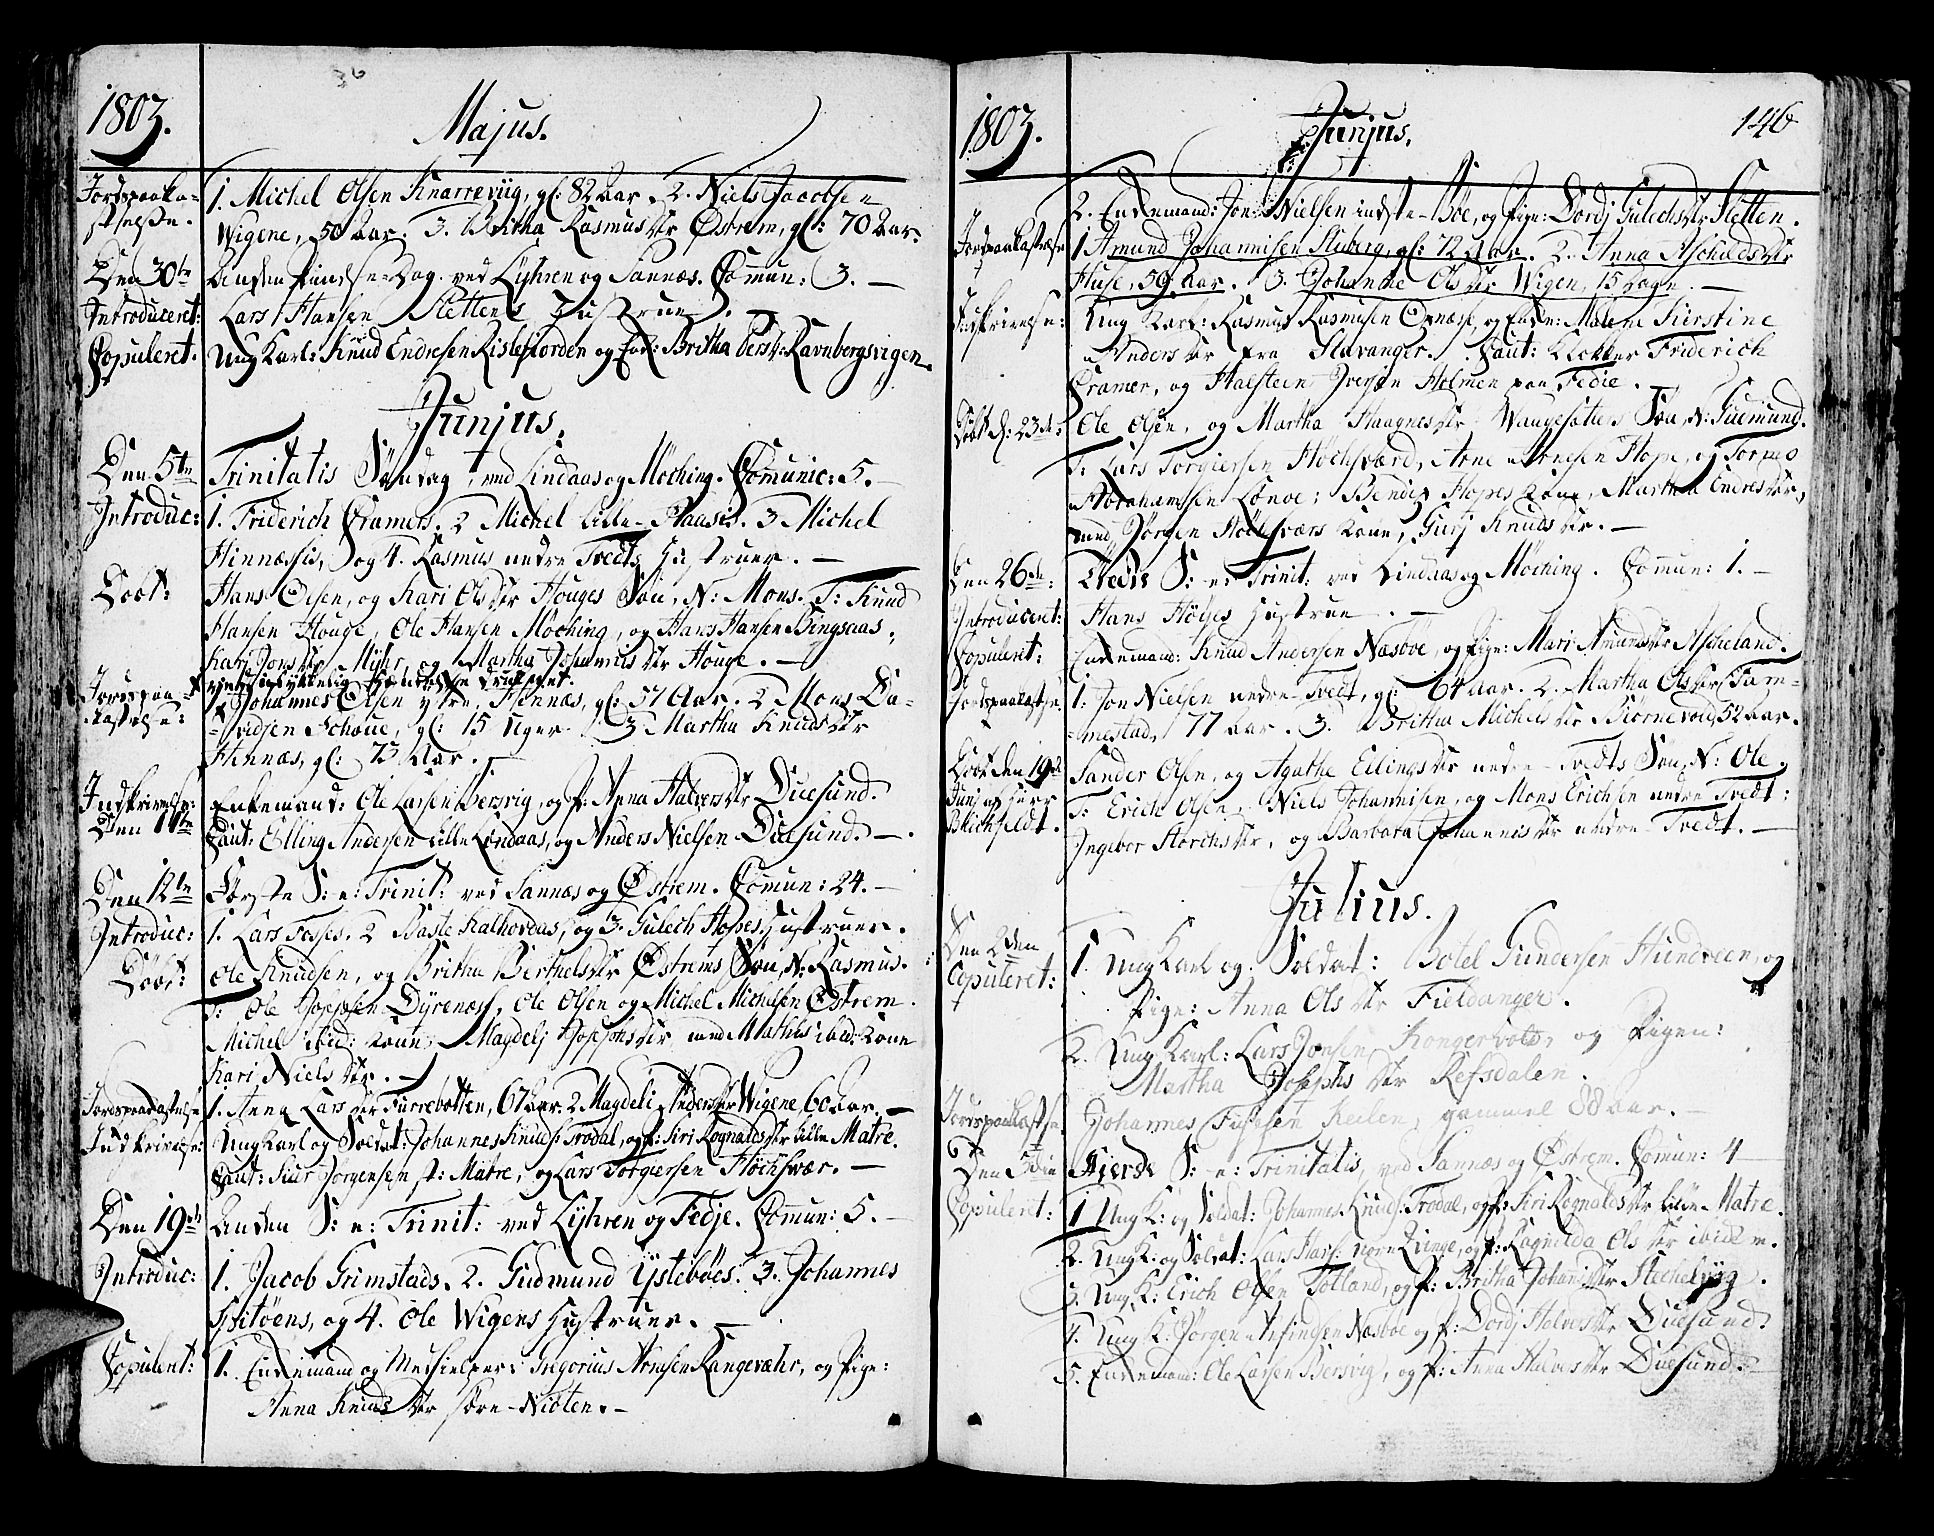 1803.
Majus.
Jordspaaka-
stelse.
1. Michel Olsen Knarreviig, gl: 82 Aar. 2. Niels Jacobsen
Wigene, 50 Aar. 3. Britha Rasmusdtr Østrem, gl: 70 Aar.
Den 30te
Anden Pindse-Dag ved Lyhren og Sannæs. Comun: 3. —
Introduceret:
Lars Hansen Slettens Hustrue. —
Copuleret.
Ung Karl: Knud Endresen Rislefiorden og Enke: Britha Persdr: Ravnbergsvigen.
Junjus.
Den 5te
Trinitatis Søndag, ved Lindaas og Møching. Comunic: 5. —
Introduc:
1. Friderich Cramers. 2 Michel Lille-Aaases. 3 Michel
Hinnæssis, og 4. Rasmus nedre Tvedts Hustruer. —
Døbt:
Hans Olsen, og Kari Olsdtr Houges Søn, N: Mons. T: Knud
Hansen Houge, Ole Hansen Møching, og Hans Hansen Ringsaas;
Kari Jonsdtr Myhr, og Martha Johannisdtr Houge. —
Jordspaa-
kastelse:
ved ulykkelig Hændelse druknet.
1. Johannes Olsen ytre Hinnæs, gl: 57 Aar. 2 Mons Da-
vidsen Schoue, gl: 15 Uger. 3 Martha Knudsdtr
Hinnæs, gl: 73 Aar.
Indskrivelse:
Den 11te
Enkemand: Ole Larsen Bersvig, og P: Anna Halversdtr Duesund.
Caut: Elling Andersen Lille Lindaas, og Anders Nielsen Duesund. —
Den 12te
Første S: e: Trinit: ved Sannæs og Østrem. Comun: 24. —
Introduc:
1. Lars Fosses. 2 Baste Kalhovdas, og 3. Gulech Hopes Hustruer.
Døbt:
Ole Knudsen, og Britha Berthelsdtr Østrems Søn, N: Rasmus.
T: Ole Josephsen Dyrenæs, Ole Olsen og Michel Michelsen Østrem.
Michel ibid: Kone, Magdeli Josephsdtr med Mathis ibid: Kone
Kari Nielsdtr. —
Jordspaakastelse
1. Anna Larsdtr Furrebotten, 67 Aar. 2 Magdeli Andersdtr Wigene 60 Aar. —
Indskrivelse:
Ung Karl og Soldat: Johannes Knuds: Trodal, og P: Siri Rognaldsdtr Lille Matre.
Caut: Siur Jorgensen st: Matre, og Lars Torgiersen Høihsvær. —
Den 19de
Anden S: e: Trinit: ved Lyhren og Fedje. Comun: 5. —
Introduc:
1. Jacob Grimstads. 2. Gudmund Ystebøes. 3. Johannes
Spitøens, og 4. Ole Wigens Hustruer. —
Copulent:
1. Enkemand og Medhielper: Gregorius Arnesen Rangevæhr, og Pige:
Anna Knudsdtr søre-Nioten. —
1803.
Junjus.
146
2. Enkemand: Jon Nielsen indste-Bøe, og Pige: Dordj Gulechsdtr Sletten.
Jordspaakastelse
1 Amund Johannisen Studerg, gl: 72 Aar. 2. Anna Aschildsdtr
Huse, 59 Aar. 3. Johanne Olsdtr Wigen, 15 Dage. —
Indskrivelse:
Ung Karl: Rasmus Rasmusen Ornæse, og Enke: Malene Kirstine
Andersdtr fra Stavanger. Caut: Klokker Friderich
Cramer, og Halsteen Iversen Holmen paa Fedie.
Døbt d: 23de:
Ole Olsen, og Martha Haagnesdtr Waagesætters Søn, N: Guemund.
T: Lars Torgiersen Høihsværd, Arne Arnesen Hope, og Tormo
Abrahamsen Lønoe; Bendix Hopes Kone, Martha Endresdtr,
med Jørgen Høihsværs Kone, Gurj Knudsdtr. —
Den 26de
Tredie S: e: Trinit: ved Lindaas og Møching. Comun: 1. —
Introduceret:
Hans Høises Hustrue. —
Copuleret:
Enkemand: Knud Andersen Næsbøe, og Pige: Mari Amundsdtr Ascheland.
Jordspaakastelse
1. Jon Nielsen nedre-Tvedt, gl: 64 Aar. 2. Martha Olsdtr Fam-
mestad, 77 Aar. 3. Britha Michelsdtr Biørnevold, 52 Aar.
Døbt den 19de
Junj af Herr
Blichfeldt.
Sander Olsen, og Agathe Ellingsdtr nedre-Tvedts Søn, N: Ole.
T: Erich Olsen, Niels Johannisen, og Mons Erichsen nedre Tvedt;
Ingebor Storchsdtr, og Barbara Johannisdtr nedre-Tvedt. —
Julius.
Den 2den
Copuleret:
1. Ung Karl og Soldat: Botel Gundersen Hundveen, og
Pige: Anna Olsdtr Fieldanger.
2. Ung Karl: Lars Jonsen Kongervold, og Pigen:
Martha Josephsdtr Refsdalen.
Jordspaakastelse
Johannes Fusesen Keilen, gammel 88 Aar. —
Den 3die
Fierde S: e: Trinitatis, ved Sannæs og Østrem. Comun: 4 —
Copuleret:
1 Ung K: og Soldat: Johannes Knuds: Trodal, og P: Siri Rognaldsdtr Lille Matre.
2. Ung K: og Soldat: Lars Hans: nore Qvinge, og P: Ragnilda Olsdtr ibidem.
3. Ung K: Erich Olsen Totland, og P: Britha Johannisdtr Hechelviig.
4. Ung K: Jørgen Arfindsen Næsboe og P: Dordj Halversdtr Duesund.
5. Enkemand: Ole Larsen Bersvig, og P: Anna Halversdtr Duesund. —